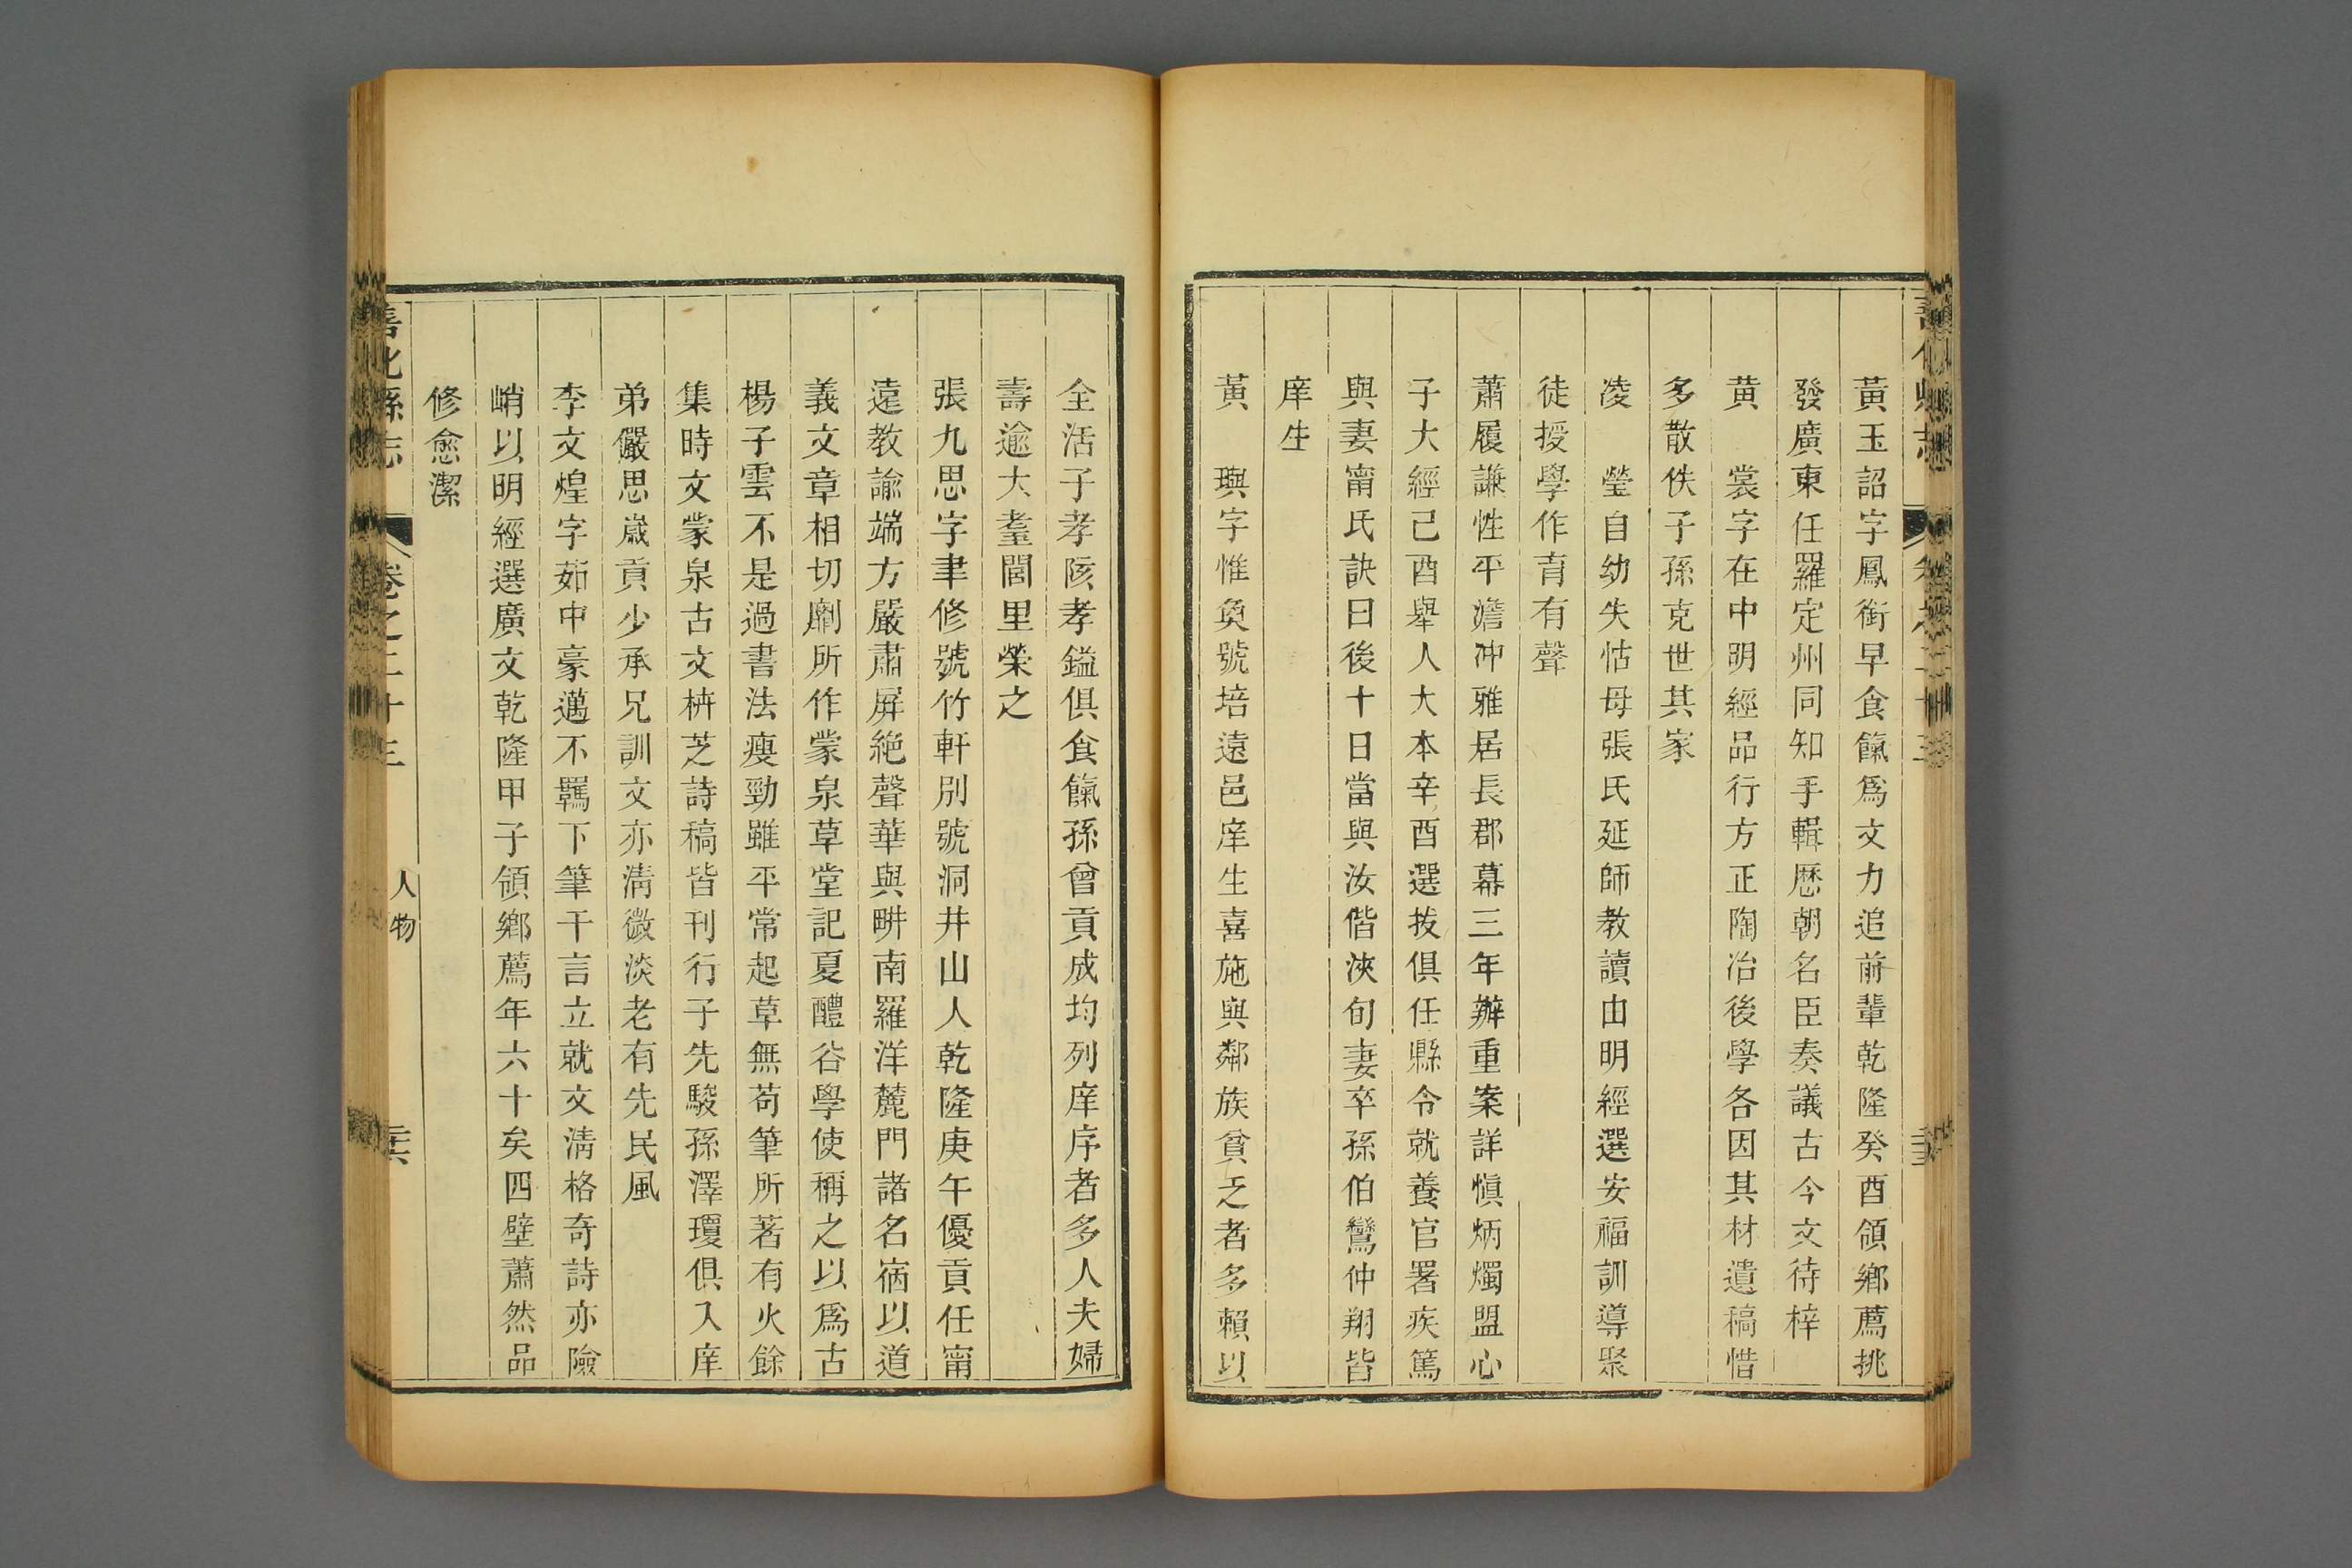 黃玉詔字鳳銜早食餼爲文力追前輩乾隆癸酉領鄉薦挑
發廣東任羅定州同知手輯歷朝名臣奏議古今文待梓
黃 裳字在中明經品行方正陶冶後學各因其材遺稿惜
多散佚子孫克世其家
凌 瑩自幼失怙母張氏延師教讀由明經選安福訓導聚
徒授學作育有聲
蕭履謙性平澹冲雅居長郡幕三年辦重案詳愼炳燭盟心
子大經己酉舉人大本辛酉選拔俱任縣令就養官署疾篤
與妻甯氏訣曰後十日當與汝偕浹旬妻卒孫伯鸞仲翔皆
庠生
黃 璵字惟奐號培遠邑庠生喜施與鄰族貧乏者多賴以
全活子孝陔孝鎰俱食餼孫曾貢成均列庠序者多人夫婦
壽逾大耋閭里榮之
張九思字聿修號竹軒別號洞井山人乾隆庚午優貢任甯
遠教諭端方嚴肅屏絶聲華與畊南羅洋麓門諸名宿以道
義文章相切劘所作蒙泉草堂記夏醴谷學使稱之以爲古
楊子雲不是過書法瘦勁雖平常起草無苟筆所著有火餘
集時文蒙泉古文枿芝詩稿皆刊行子先駿孫澤瓊俱入庠
弟儼思歲貢少承兄訓文亦清微淡老有先民風
李文煌字茹中豪邁不羈下筆千言立就文清格奇詩亦險
峭以明經選廣文乾隆甲子領鄉薦年六十矣四壁蕭然品
修愈潔
善化縣志 卷之二十三 人物